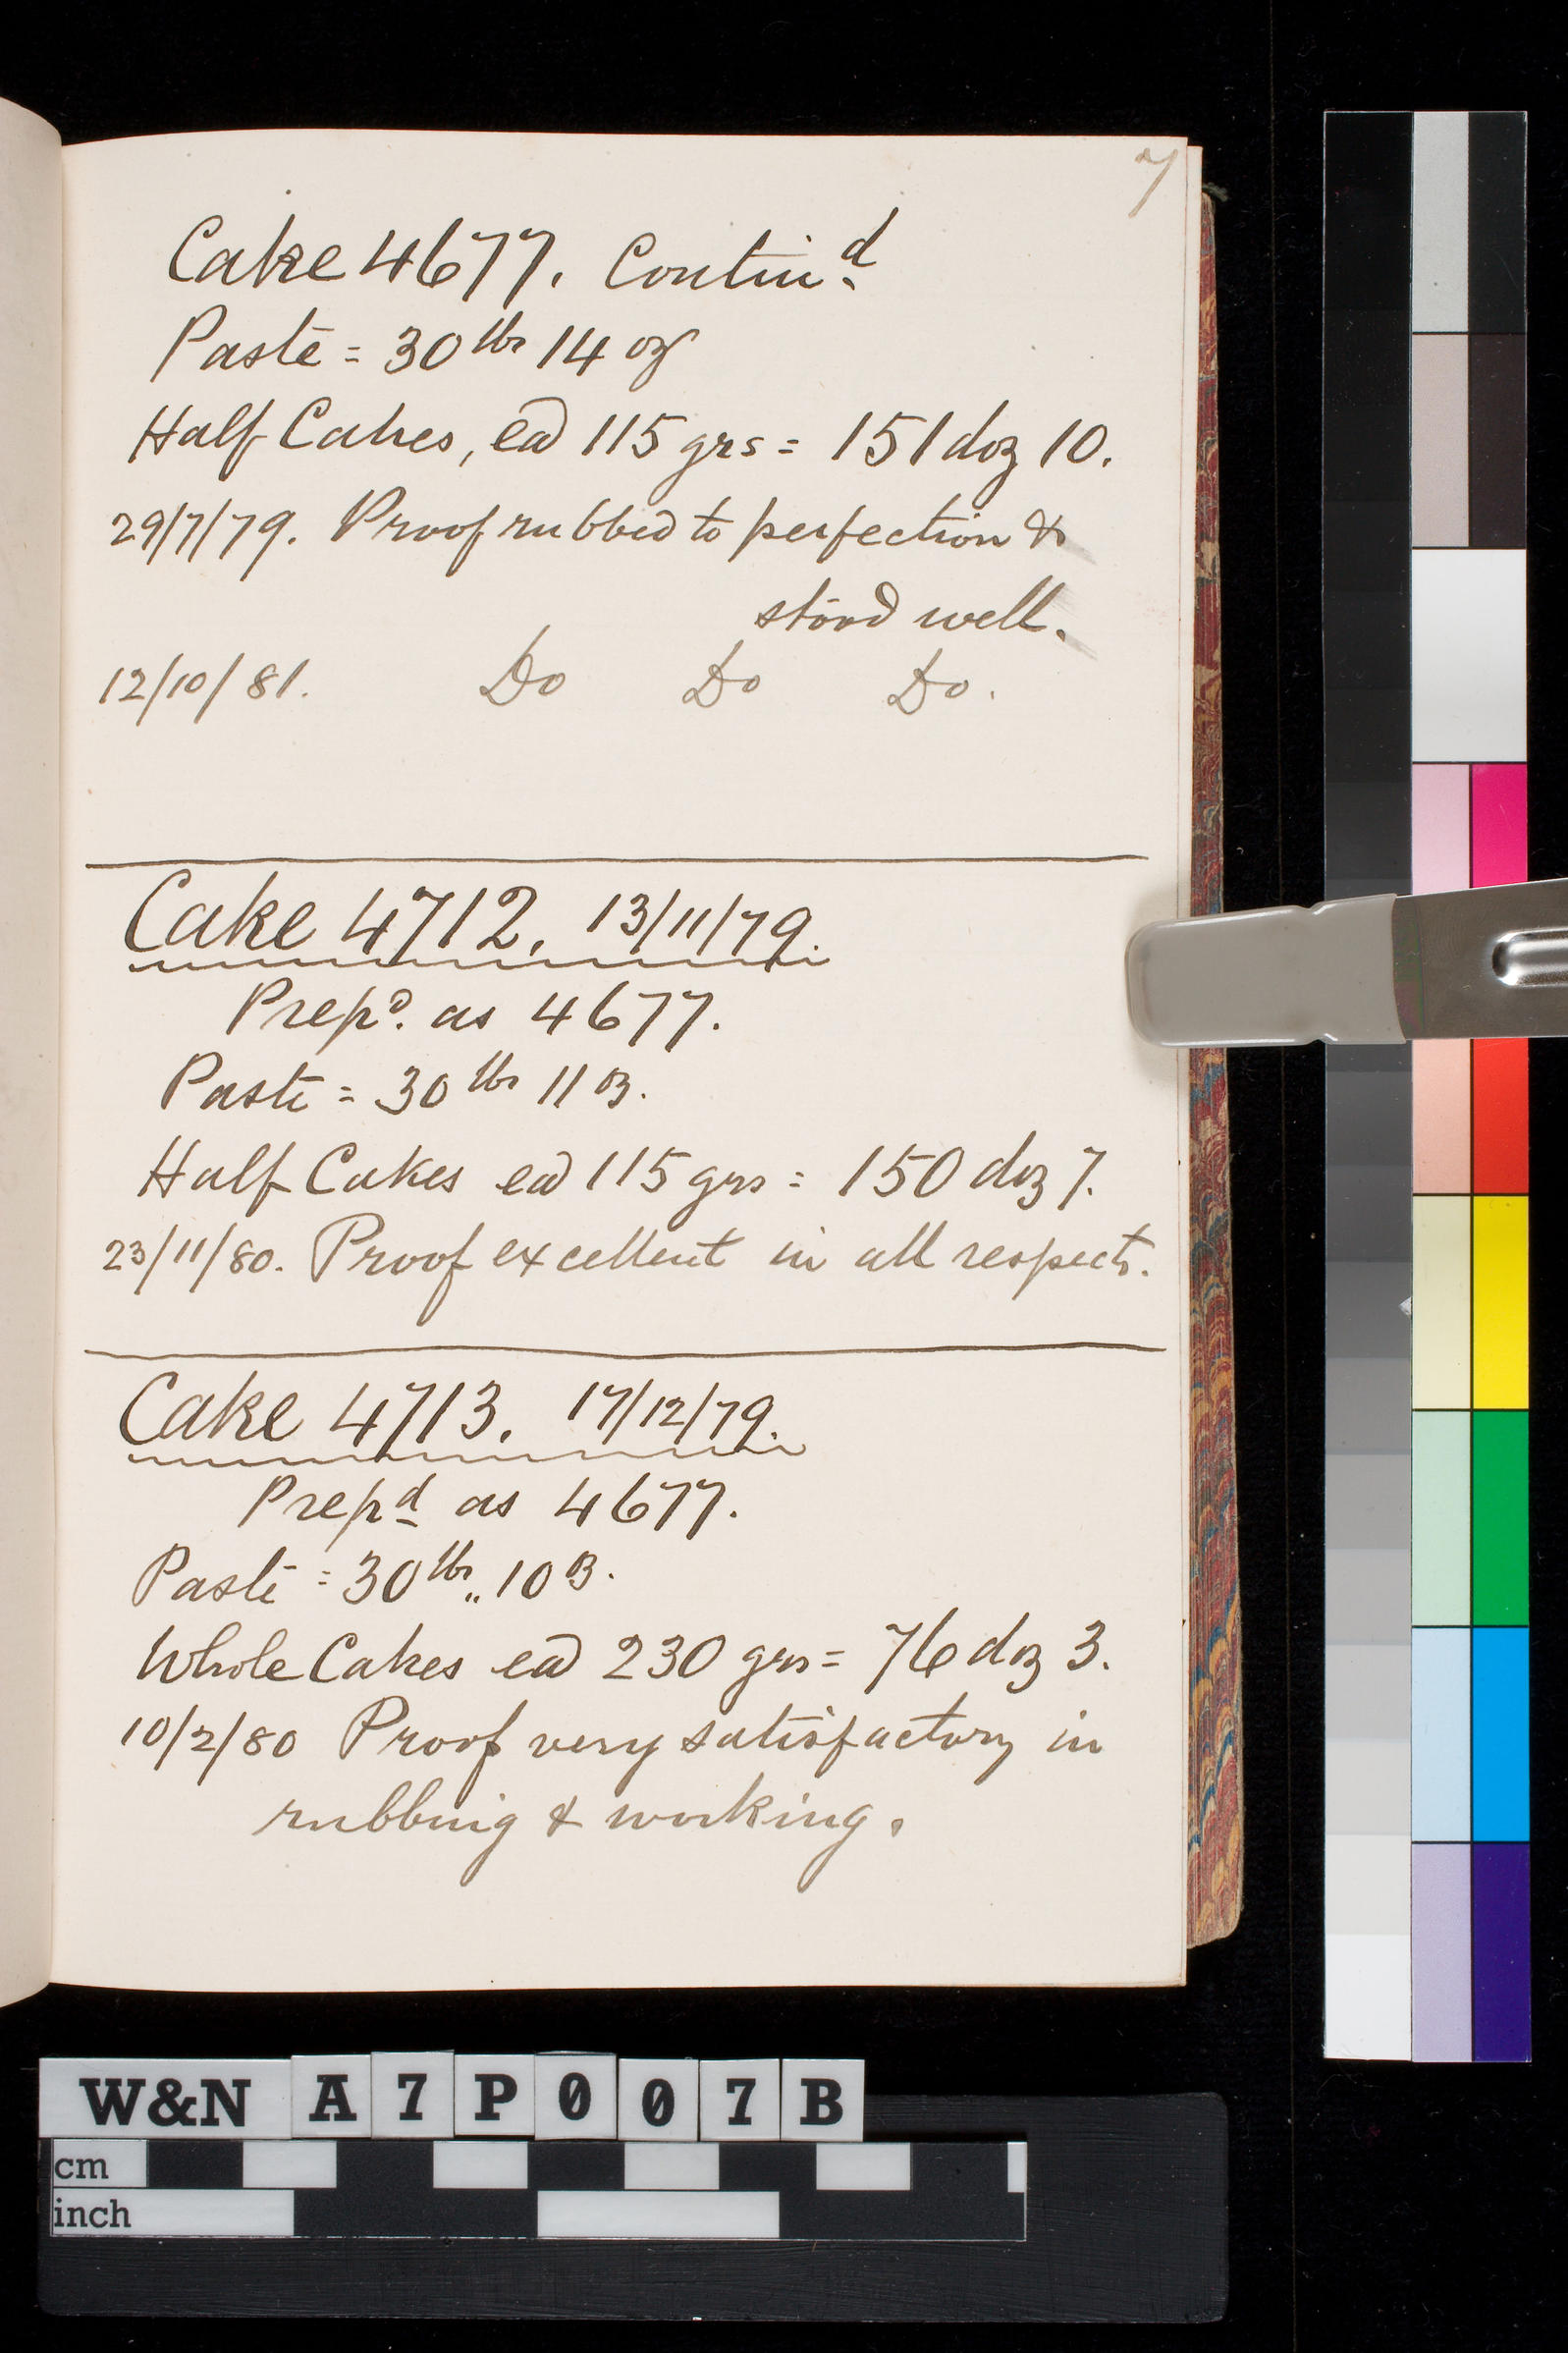 7
Cake 4677. Contin.d
Paste = 30 lbs 14 oz
Half Cakes, ea 115 grs = 151 doz 10.
29/7/79. Proof rubbed to perfection &
stood well.
12/10/81. Do Do Do.
Cake 4712. 13/11/79.
Prepd. as 4677.
Paste = 30 lbs 11 oz.
Half Cakes ea 115 grs = 150 doz 7.
23/11/80. Proof excellent in all respects.
Cake 4713. 17/12/79.
Prepd as 4677.
Paste = 30 lbs „ 10 oz.
Whole Cakes ea 230 grs = 76 doz 3.
10/2/80 Proof very satisfactory in
rubbing & working.
W&N A7P007B
cm
inch